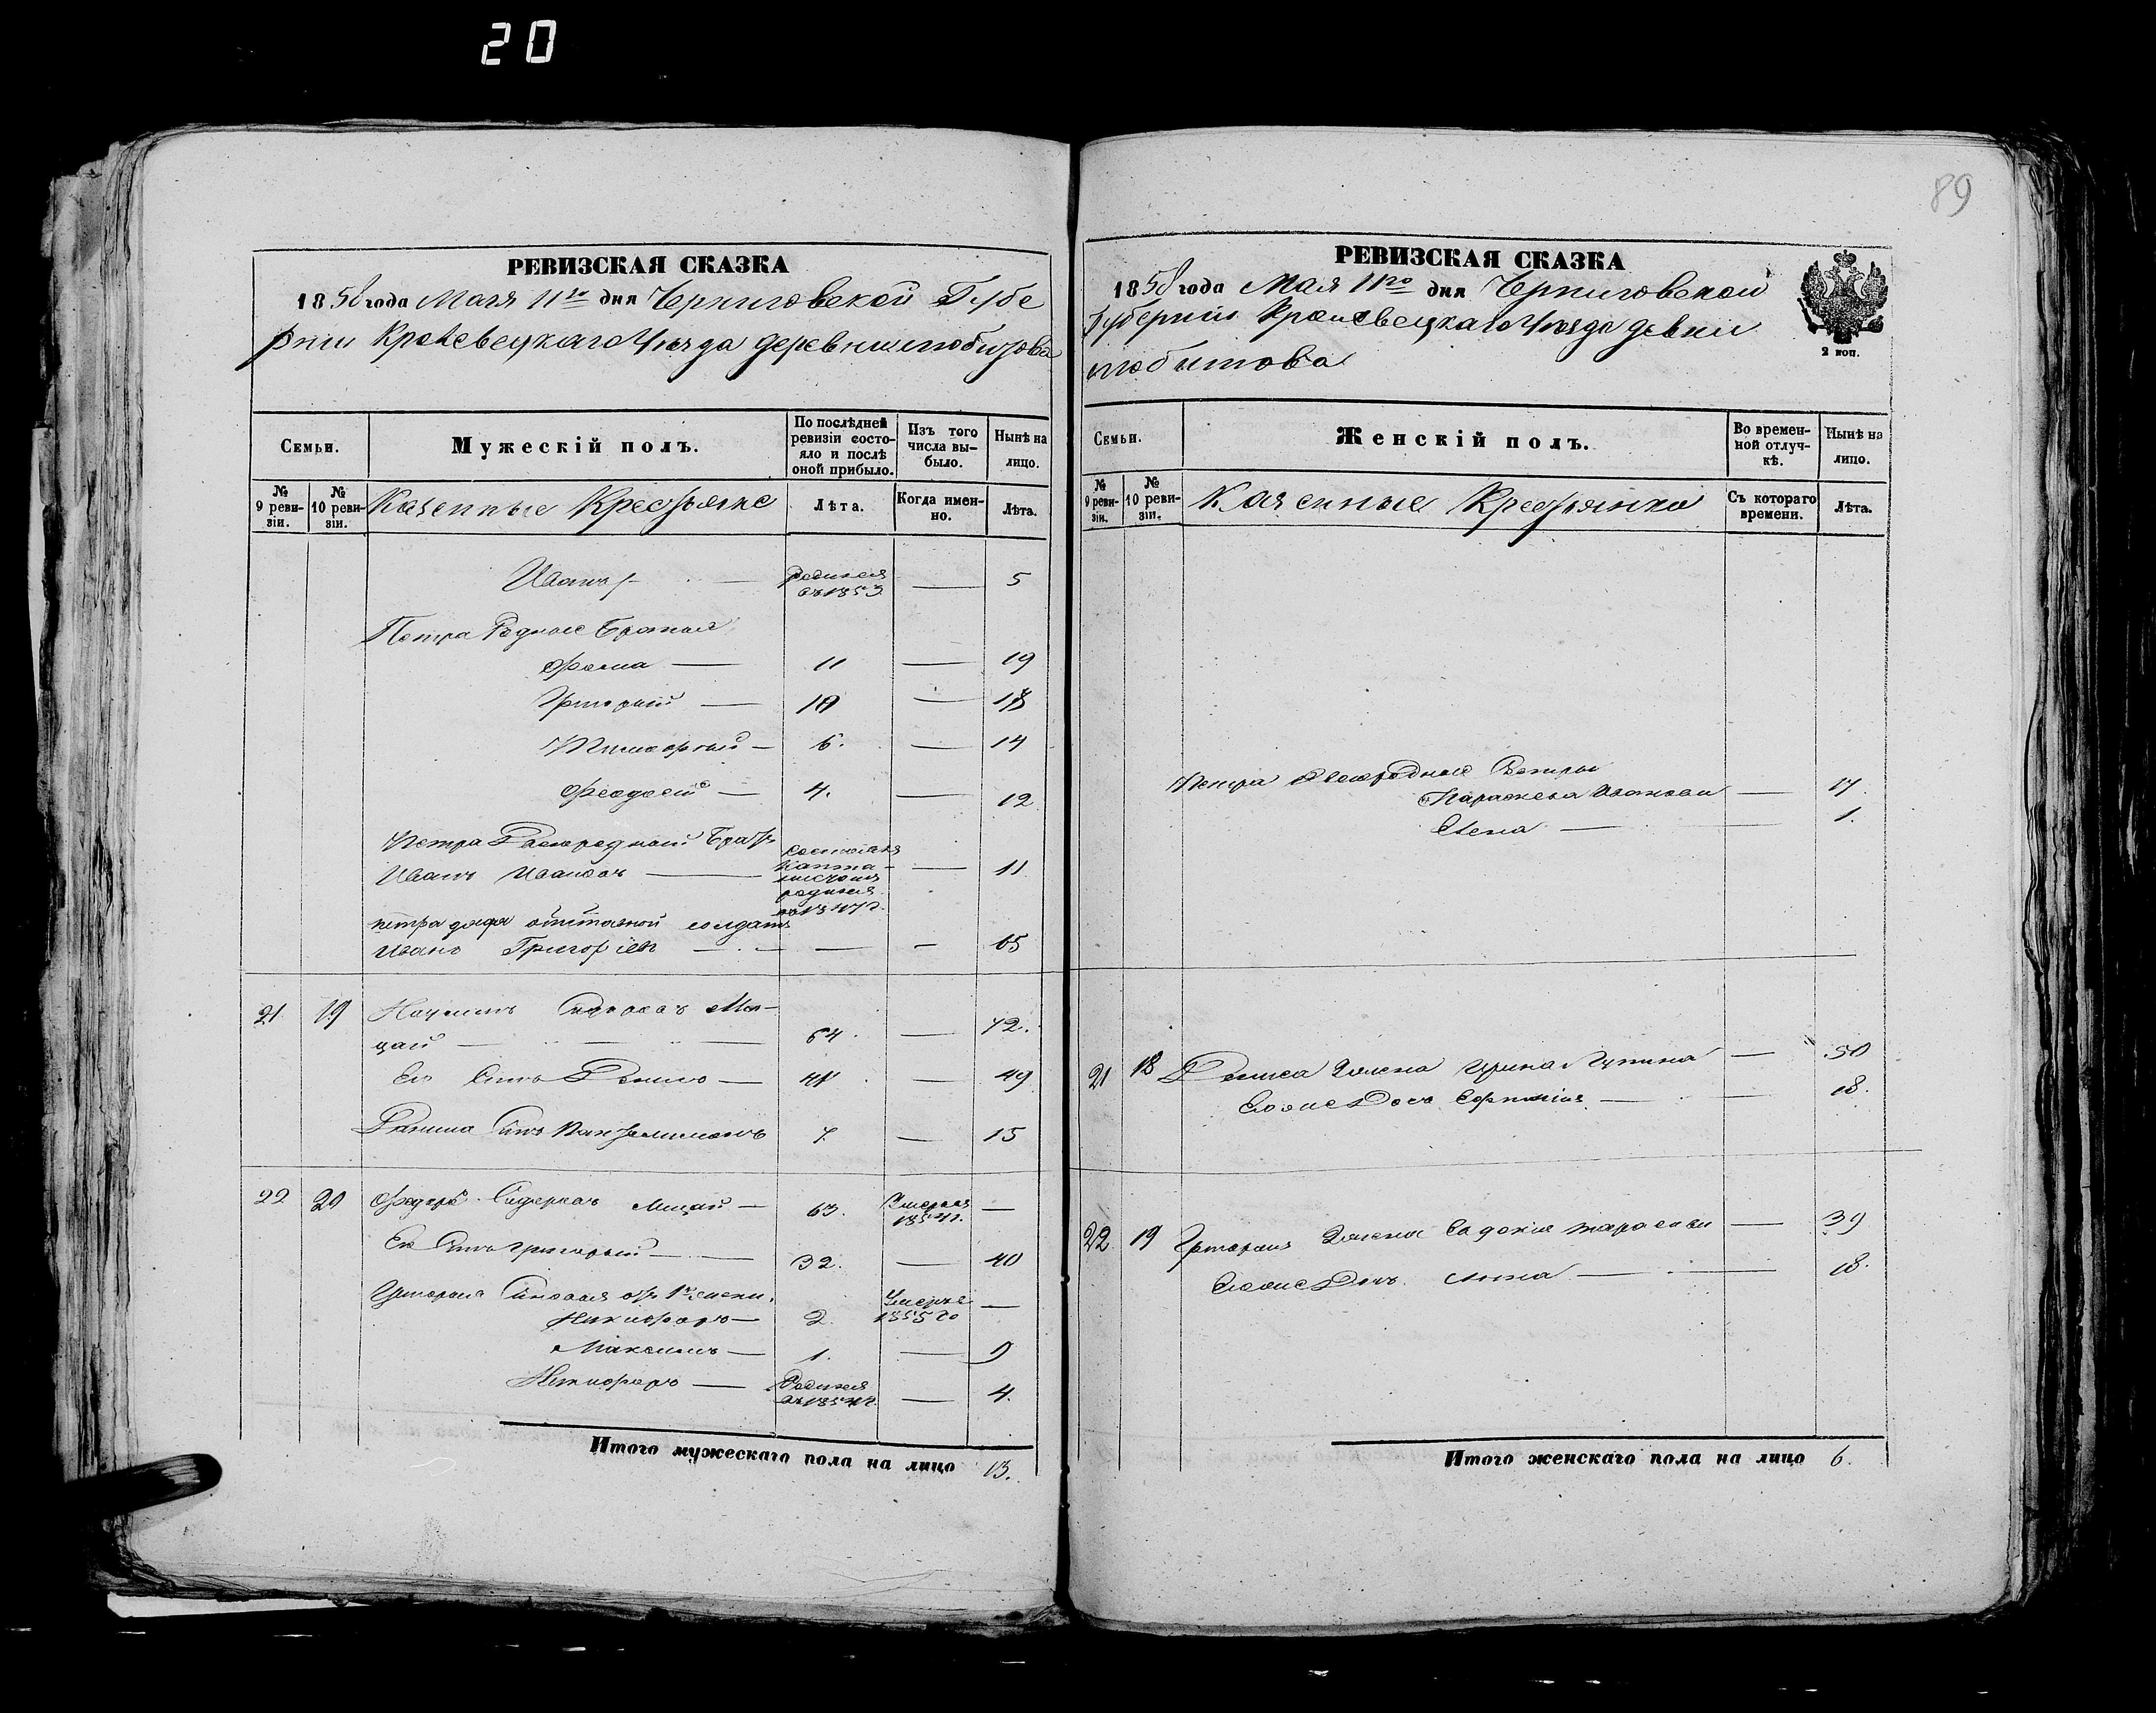 20
89
РЕВИЗСКАЯ СКАЗКА
1858 года Мая 11го дня Черниговской Губе
рнии Кролевецкаго Уезда деревни Любитова
Семьи.
Мужескій полъ.
По послѣдней ревизіи состояло и послѣ оной прибыло.
Изъ того числа выбыло.
Нынѣ на лицо.
№ 9 ревизіи.
№ 10 ревизіи.
Казенные Крестьяне
Лѣта.
Когда именно.
Лѣта.
Иванъ — родился въ 1853 — 5
Петра Родные Братья
Фома — 11 — 19
Григорий — 10 — 18
Тимофей — 6. — 14
Феодосий — 4. — 12
Петра Двоюродный Братъ
Иванъ Ивановъ — родился 1847 г. — 11
петра дядя отставной солдатъ
Иванъ Григоріев — — — 65
21 19 Наумъ Сидоровъ Ми-
цай — 64. — 72.
Его Сынъ Данило — 41 — 49
Данила Сынъ Пантелимонъ 7. — 15
22 20 Федоръ Сидоровъ Мицай — 63. Умеръ 1854 г. —
Его Сынъ Григорий — 32. — 40
Григорія Сыновья отъ 1й жены.
Никифоръ — 2. Умеръ 1855 го —
Максимъ — 1. — 9
Никифоръ — Родился въ 1854 г. — 4.
Итого мужескаго пола на лицо 13.
РЕВИЗСКАЯ СКАЗКА
1858 года Мая 11го дня Черниговской
Губерніи Кролевецкаго Уезда девни
Любитова
2 коп.
Семьи.
Женскій полъ.
Во временной отлучкѣ.
Нынѣ на лицо.
№ 9 ревизіи.
№ 10 ревизіи.
Казенные Крестьянки
Съ котораго времени.
Лѣта.
Петра Двоюродные Сестры
Параскева Иванова — 17.
Елена — 1.
21 18 Жена Ирина — 50
18.
22 19 Григорія Жена Евдокия Тарасова — 39
Анна — 18.
Итого женскаго пола на лицо 6.